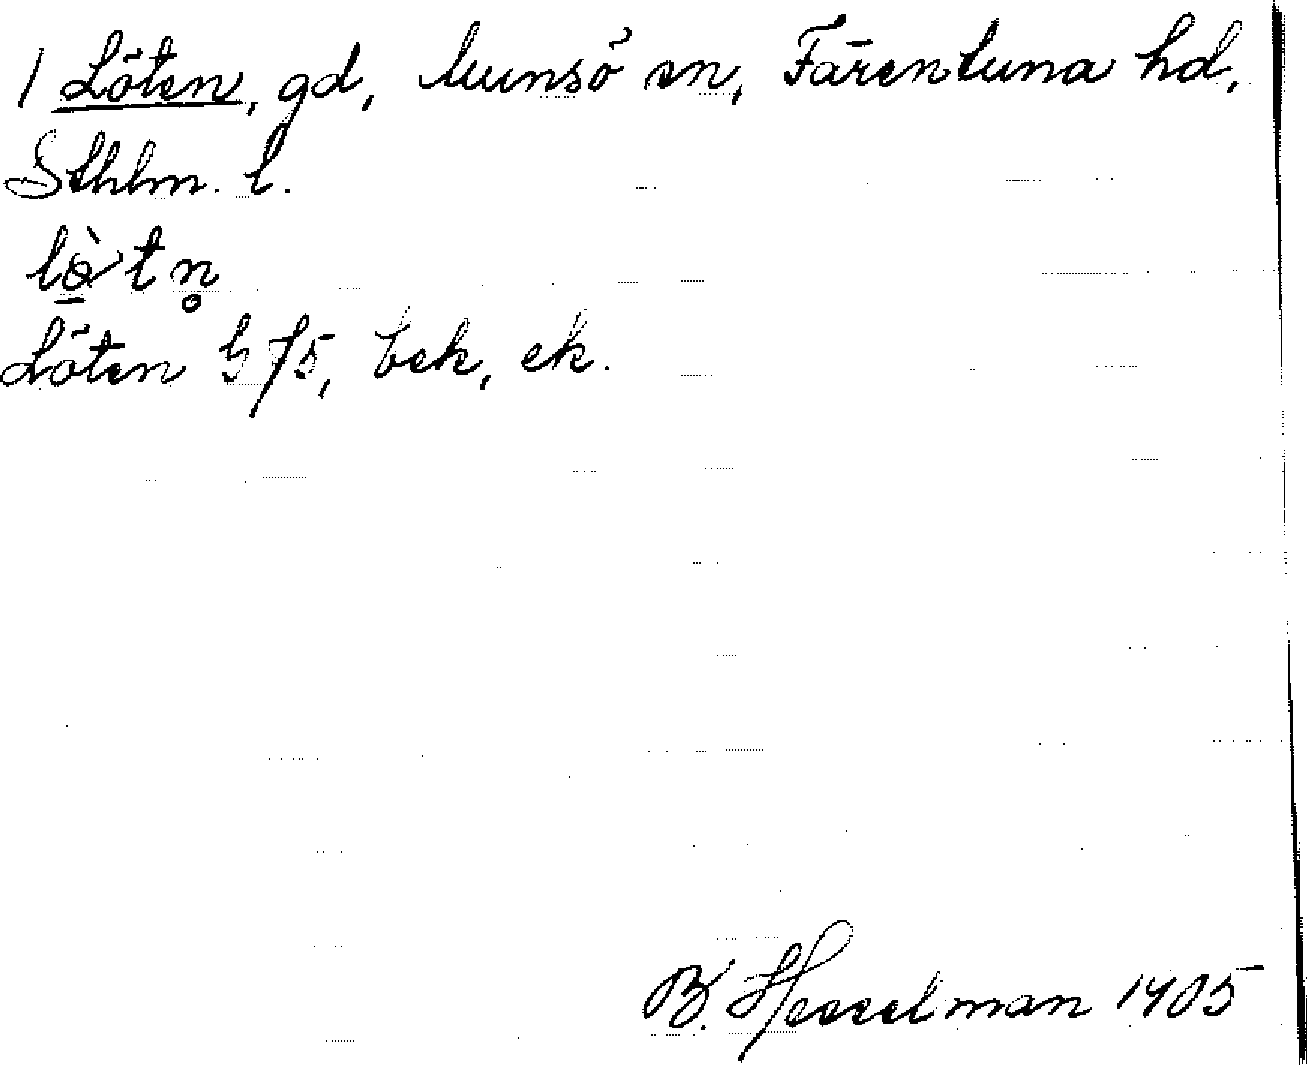 1 Löten, gd, Munsö sn, Färentuna hd,
Sthlm. l.
lö̀tn̥
Löten G f5, bek, ek.
B. Hesselman 1905